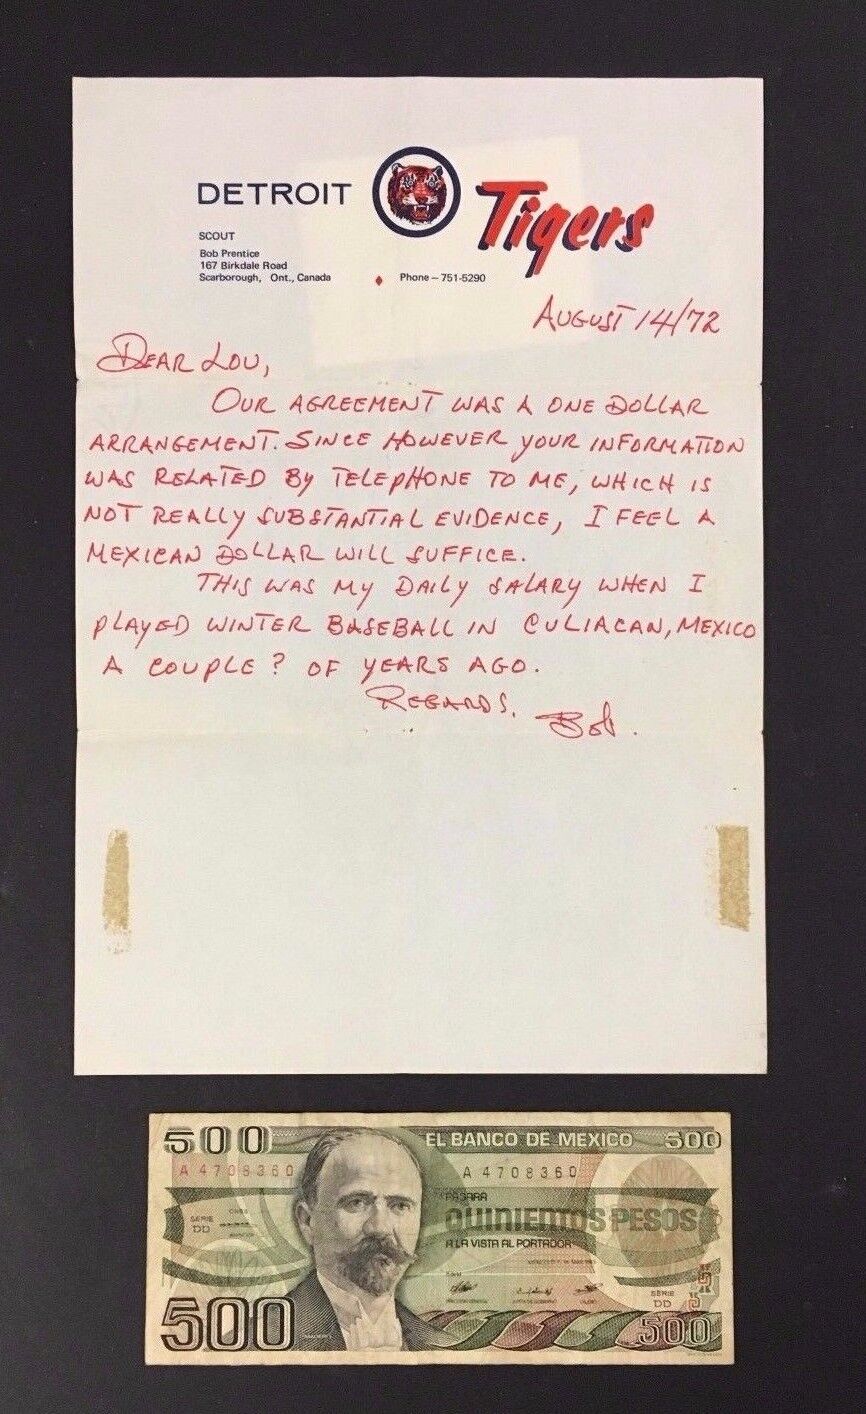 DETROIT Tigers
SCOUT
Bob Prentice
167 Birkdale Road
Scarborough, Ont., Canada
Phone – 751-5290
AUGUST 14/72
DEAR LOU,
OUR AGREEMENT WAS A ONE DOLLAR
ARRANGEMENT. SINCE HOWEVER YOUR INFORMATION
WAS RELATED BY TELEPHONE TO ME, WHICH IS
NOT REALLY SUBSTANTIAL EVIDENCE, I FEEL A
MEXICAN DOLLAR WILL SUFFICE.
THIS WAS MY DAILY SALARY WHEN I
PLAYED WINTER BASEBALL IN CULIACAN, MEXICO
A COUPLE? OF YEARS AGO.
REGARDS,
Bob.
500 EL BANCO DE MEXICO 500
A 4708360 A 4708360
PAGARA
QUINIENTOS PESOS
A LA VISTA AL PORTADOR
SERIE
DD
SERIE
DD
500 500